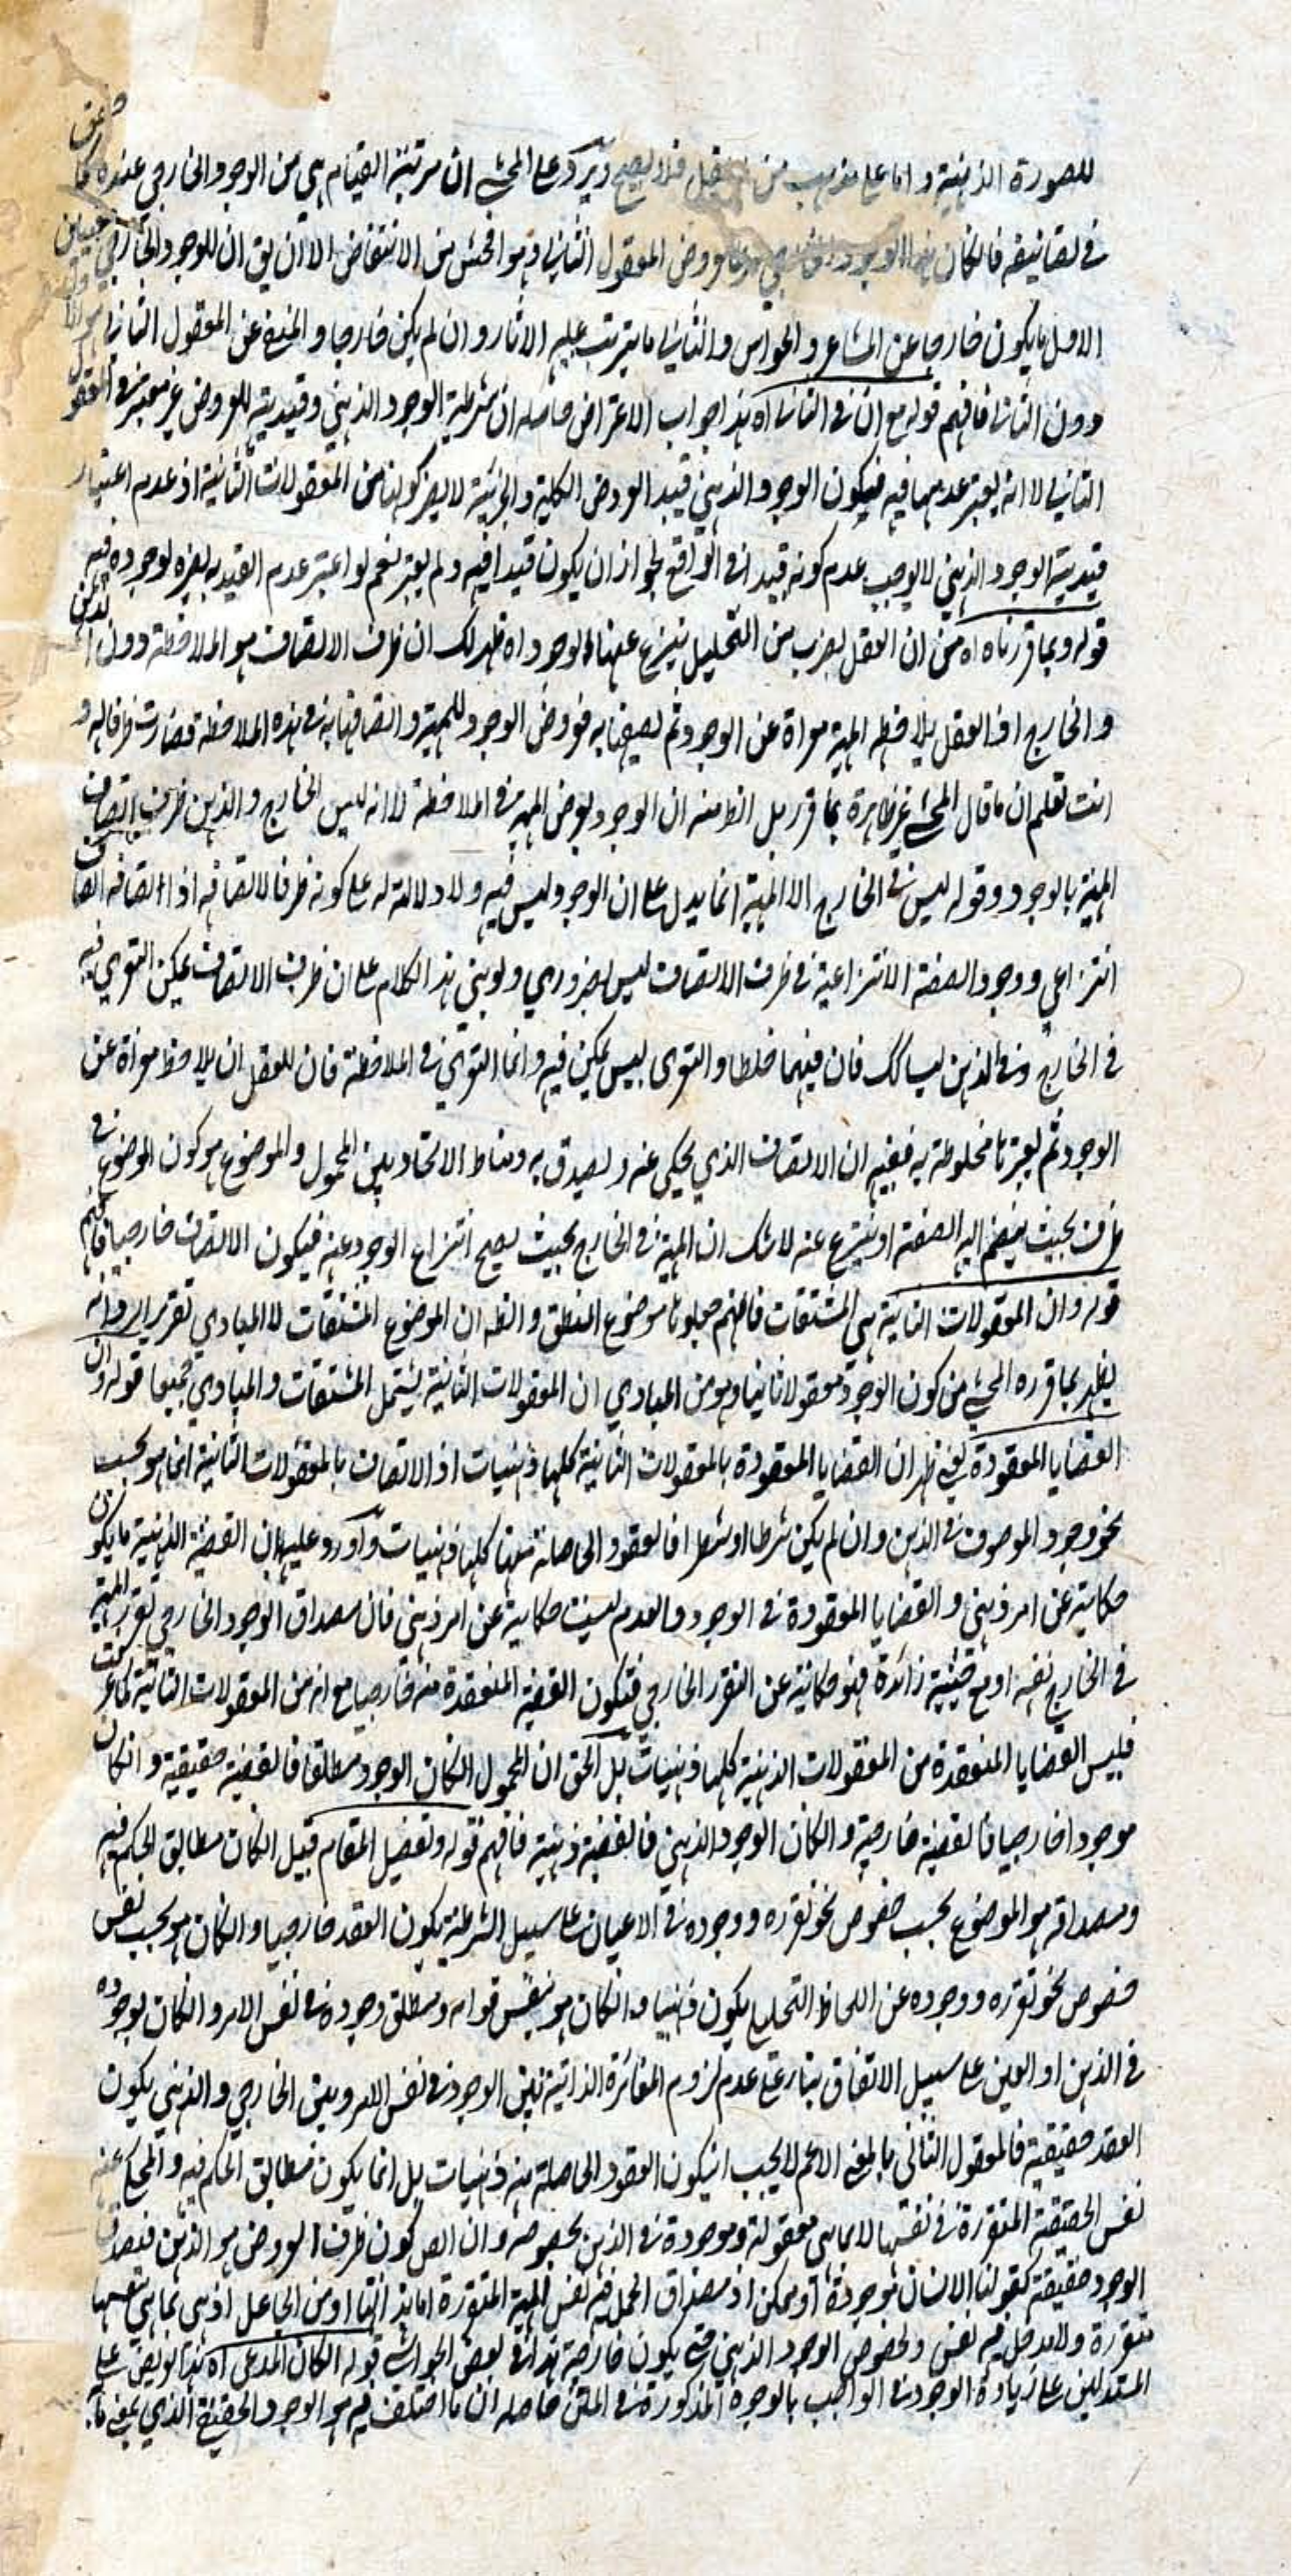 للصورة الذهنية و اما على مذهب من فلا يصح ويرد على المحشي ان مرتبة القيام هي من الوجود الخارجي عنده كما
في تصانيفه فالكان الوجود المعقول الثاني وهو افحش من الانتقاض الا ان يق ان للوجود الخارجي
الاول ما يكون خارجا عن المشاعر و الحواس و الثاني ما يترتب عليه الاثار و ان لم يكن خارجا و المنفي عن المعقول الثاني هو الاول
دون الثاني فافهم قوله مع ان في الثاني اه هذا جواب الاعتراض حاصله ان شرطية الوجود الذهني وقيدية للعروض غير معتبر في المعقول
الثاني لا انه يعتبر عدمها فيه فيكون الوجود الذهني قيد العروض الكلية و الجزئية لا يضر كونها من المعقولات الثانية اذ عدم اعتبار
قيدية الوجود الذهني لا يوجب عدم كونه قيدا في الواقع لجواز ان يكون قيدا فيه و لم يعتبر نعم لو اعتبر عدم القيدية يضره لوجوده فيه
قوله وبما قررناه اه من ان العقل بضرب من التحليل ينزع عنها الوجود اه ظهر لك ان ظرف الاتصاف هو الملاحظة دون الذهن
و الخارج اذ العقل يلاحظ المهية معراة عن الوجود ثم يصفها به فعروض الوجود للمهية و اتصافها به في هذه الملاحظة فصارت ظرفا له و
انت تعلم ان ما قال المحشي غير ظاهرة بما قرر بل الظ منه ان الوجود يعرض المهية في الملاحظة لا انه ليس الخارج و الذهن ظرف اتصاف
المهية بالوجود و قوله ليس في الخارج الا المهية انما يدل على ان الوجود ليس فيه و لا دلالة له على كونه ظرفا لاتصافه اذ اتصافه اتصاف
انتزاعي و وجود الصفة الانتزاعية في ظرف الاتصاف ليس بضروري و لو بني هذا الكلام على ان ظرف الاتصاف يمكن التعري فيه
في الخارج وفي الذهن ليسا كك فان فيهما خلطا و التعري ليس يمكن فيه و انما التعري في الملاحظة فان للعقل ان يلاحظ معراة عن
الوجود ثم يعتبرها مخلوطة به ففيه ان الاتصاف الذي يحكى عنه و يصدق به و مناط الاتحاد بين المحمول و الموضوع هو كون الموضوع في
ظرف بحيث ينضم اليه الصفة او ينتزع عنه لا شك ان المهية في الخارج بحيث يصح انتزاع الوجود عنه فيكون الاتصاف خارجيا فافهم
قوله و ان المعقولات الثانية هي المشتقات فانهم جعلوها موضوع المنطق و الظ ان الموضوع المشتقات لا المبادي تقرير ايراد انه
يظهر بما قرره المحشي من كون الوجود معقولا ثانيا و هو من المبادي ان المعقولات الثانية يشتمل المشتقات و المبادي جميعا قوله و ان
القضايا المعقودة يعني ظهر ان القضايا المعقودة بالمعقولات الثانية كلها ذهنيات اذ الاتصاف بالمعقولات الثانية انما هو بحسب
نحو وجود الموصوف في الذهن و ان لم يكن شرطا او شطرا فالعقود الحاصلة منها كلها ذهنيات و اورد عليه بان القضية الذهنية ما يكون
حكاية عن امر ذهني و القضايا المعقودة في الوجود و العدم ليست حكاية عن امر ذهني فان مصداق الوجود الخارجي تقرر المهية
في الخارج نفسه او مع حيثية زائدة فهو حكاية عن التقرر الخارجي فتكون القضية المنعقدة منه خارجيا مع انه من المعقولات الثانية كما عرفت
فليس القضايا المنعقدة من المعقولات الذهنية كلها ذهنيات بل الحق ان المحمول الكان الوجود مطلق فالقضية حقيقية و انكان
موجودا خارجيا فالقضية خارجية و الكان الوجود الذهني فالقضية ذهنية فافهم قوله و تفصيل المقام قيل الكان مطابق الحكم فيه
و مصداقه هو الموضوع بحسب خصوص نحو تقرره و وجوده في الاعيان على سبيل الشرطية يكون العقد خارجيا و الكان هو بحسب نفس
خصوص نحو تقرره و وجوده عن اللحاظ التحليلي يكون ذهنيا و انكان هو بنفس قوامه و مطلق وجوده في نفس الامر و الكان بوجوده
في الذهن او العين على سبيل الاتفاق بناء على عدم لزوم المغائرة الذاتية بين الوجود في نفس الامر و بين الخارجي و الذهني يكون
العقد حقيقية فالمعقول الثاني بالمعنى الاعم لا يجب ان يكون العقود الحاصلة منه ذهنيات بل انما يكون مطابق الحكم فيه و المحكي عنه
نفس الحقيقة المتقررة في نفسها لا بما هي معقولة و موجودة في الذهن بخصوصه و ان الص كون ظرف العروض هو الذهن فيصدق
الوجود حقيقة كقولنا الانسان موجودة او ممكن اذ مصداق الحمل فيه نفس المهية المتقررة اما بذاتها او من الجاعل اذ هي بما هي نفسها
متقررة و لا مدخل فيه لنفس و لخصوص الوجود الذهني حتى يكون خارجية هذا في بعض الحواشي قوله الكان المدعى اه هذا تعريض على
المستدلين على زيادة الوجود في الواجب بالوجوه المذكورة في المتن حاصله ان ما اختلف فيه هو الوجود الحقيقي الذي يعني ما